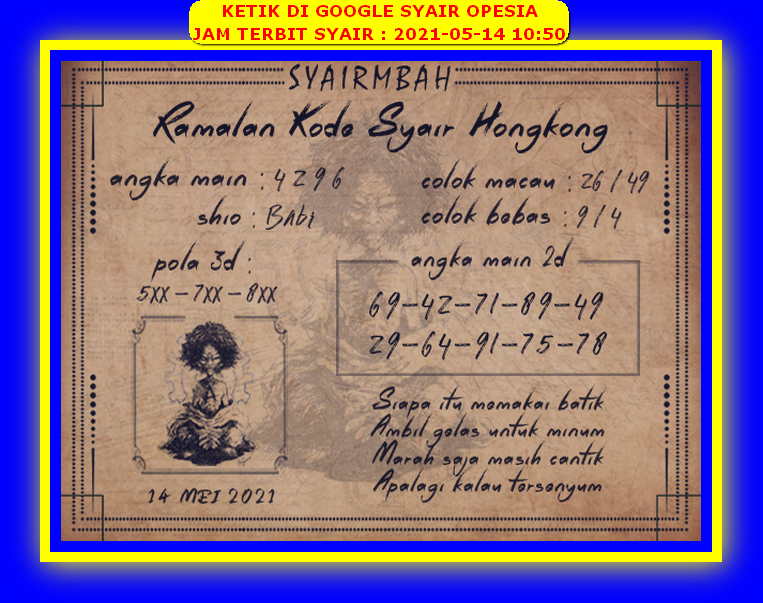 KETIK DI GOOGLE SYAIR OPESIA
JAM TERBIT SYAIR : 2021-05-14 10:50
SYAIRMBAH
Ramalan Kode Syair Hongkong
angka main : 4 2 9 6
colok macau : 26 / 49
shio : BAbi
colok bebas : 9 / 4
pola 3d :
5XX – 7XX – 8XX
angka main 2d
69–42–71–89–49
29–64–91–75–78
Siapa itu memakai batik
Ambil gelas untuk minum
Marah saja masih cantik
Apalagi kalau tersenyum
14 MEI 2021